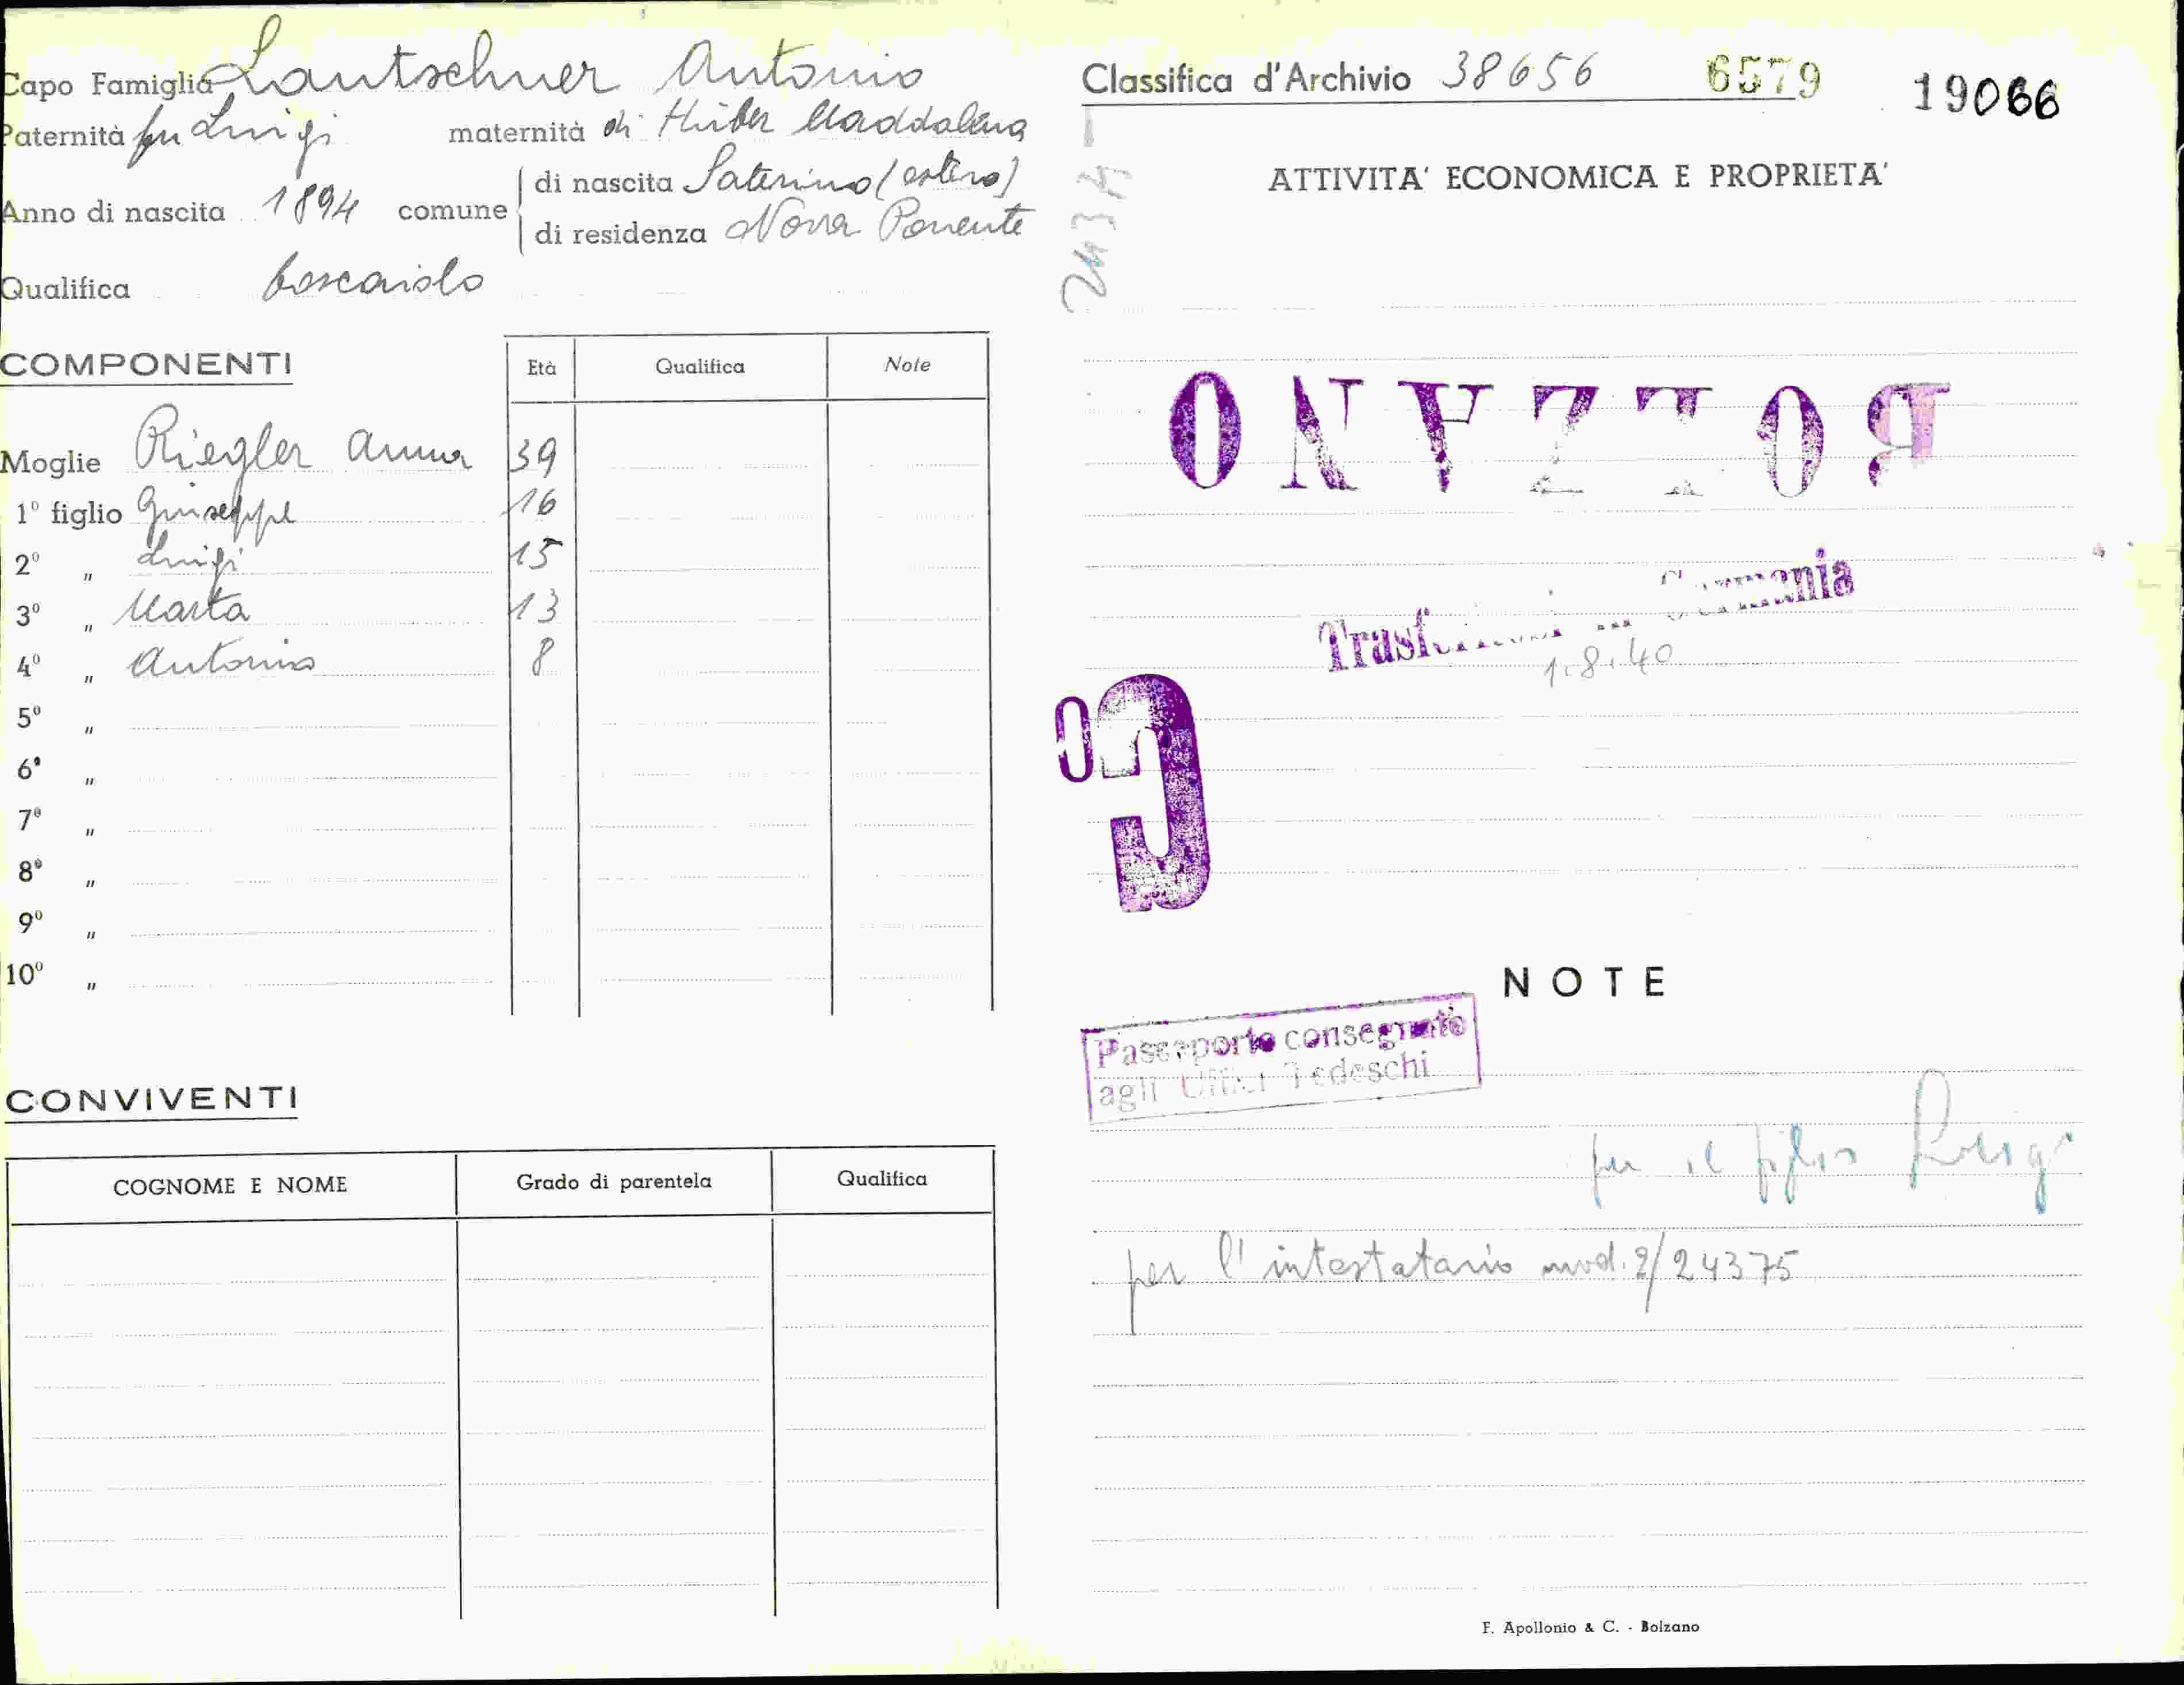 Capo Famiglia Lantschner Antonio
Paternità fu Luigi maternità di Huber Maddalena
Anno di nascita 1894 comune
di nascita (estero)
di residenza Nova Ponente
Qualifica boscaiolo
COMPONENTI
Età Qualifica Note
Moglie Riegler Anna 39
1º figlio Giuseppe 16
2º " Luigi 15
3º " Marta 13
4º " Antonio 8
5º "
6º "
7º "
8º "
9º "
10º "
CONVIVENTI
COGNOME E NOME Grado di parentela Qualifica
Classifica d'Archivio 38656 6579 19066
ATTIVITA' ECONOMICA E PROPRIETA'
BOLZANO
Germania
1.8.40
NOTE
Passaporto consegnato
agli Uffici Tedeschi
per il figlio Luigi
per l'intestatario mod. 2/24375
F. Apollonio & C. - Bolzano